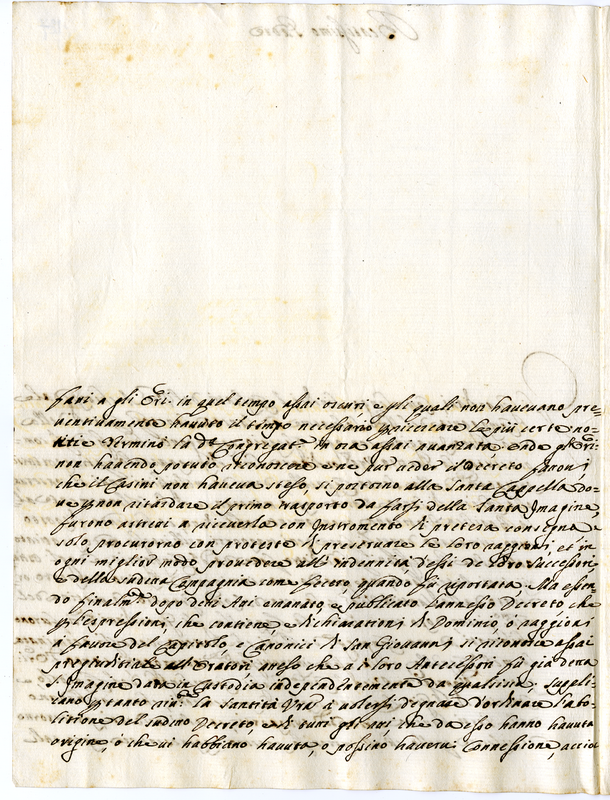 fani a gli Ori. in quel tempo assai oscuri, e p gli quali non havevano pre=
ventivamente havuto il tempo necessario p ricercare le più certe no=
titie terminò la dta Congregatne in ora assai avanzata: onde gli Ori:
non havendo potuto riconoscere, ne pur veder il decreto furono,
che il Casini non haveva steso, si portorno alla Santa Cappella, do=
ve p non ritardare il primo trasporto da farsi della Santa Imagine,
furono astretti a riceverla con Instromento di pretesa consegna, e
solo procurorno con proteste di preservare le loro raggioni, et in
ogni miglior modo provedere all' indennità d'essi, de loro Successori
e della sudetta Compagnia come fecero, quando fù riportata. Ma essen=
do finalmte dopo detti Atti emanato, e publicato l'annesso Decreto, che
p l'espressioni, che contiene, e dichiarationi di Dominio, ò raggioni
a favore del Capitolo, e Canonici di San Giovanni si riconosce assai
pregiuditiale all' Oratori, atteso che a i loro Antecessori fù già detta
S. Imagine data in Custodia independentemente da qualsisia; suppli=
cano p tanto la Santità Vra à volersi degnare d'ordinare l'abo=
litione del sudetto Decreto, e di tutti gli atti, che da esso hanno havuta
origine, ò che vi habbiano havuta, o possino havere Connessione, acciò